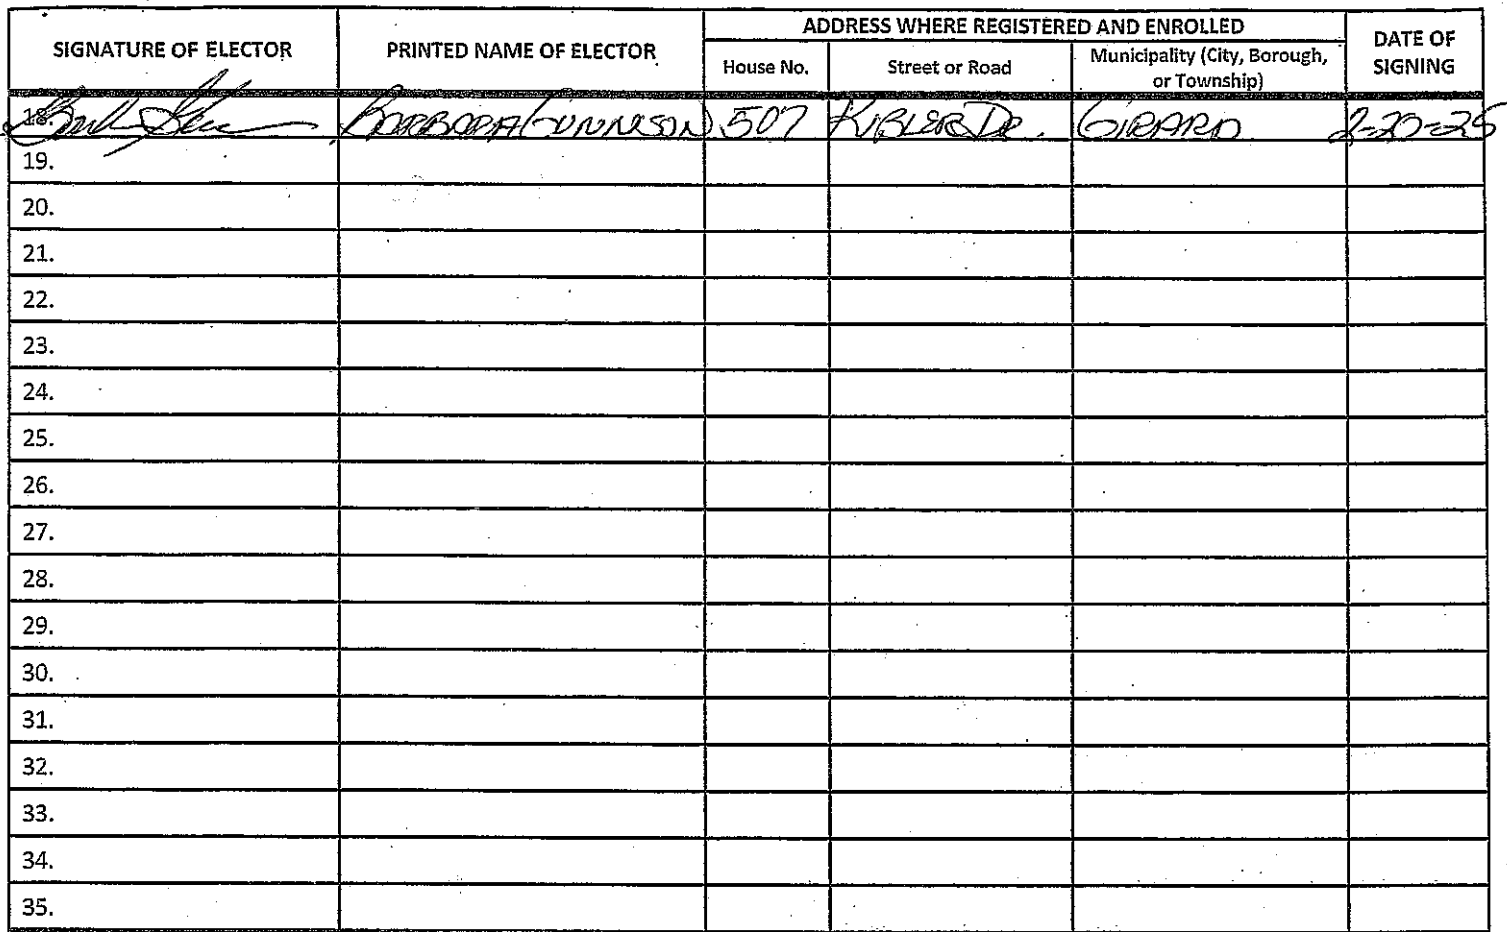 SIGNATURE OF ELECTOR PRINTED NAME OF ELECTOR ADDRESS WHERE REGISTERED AND ENROLLED DATE OF SIGNING
House No. Street or Road Municipality (City, Borough, or Township)
18. BARBARA GUNNISON 507 KIBLER DR. GIRARD 2-20-25
19.
20.
21.
22.
23.
24.
25.
26.
27.
28.
29.
30.
31.
32.
33.
34.
35.